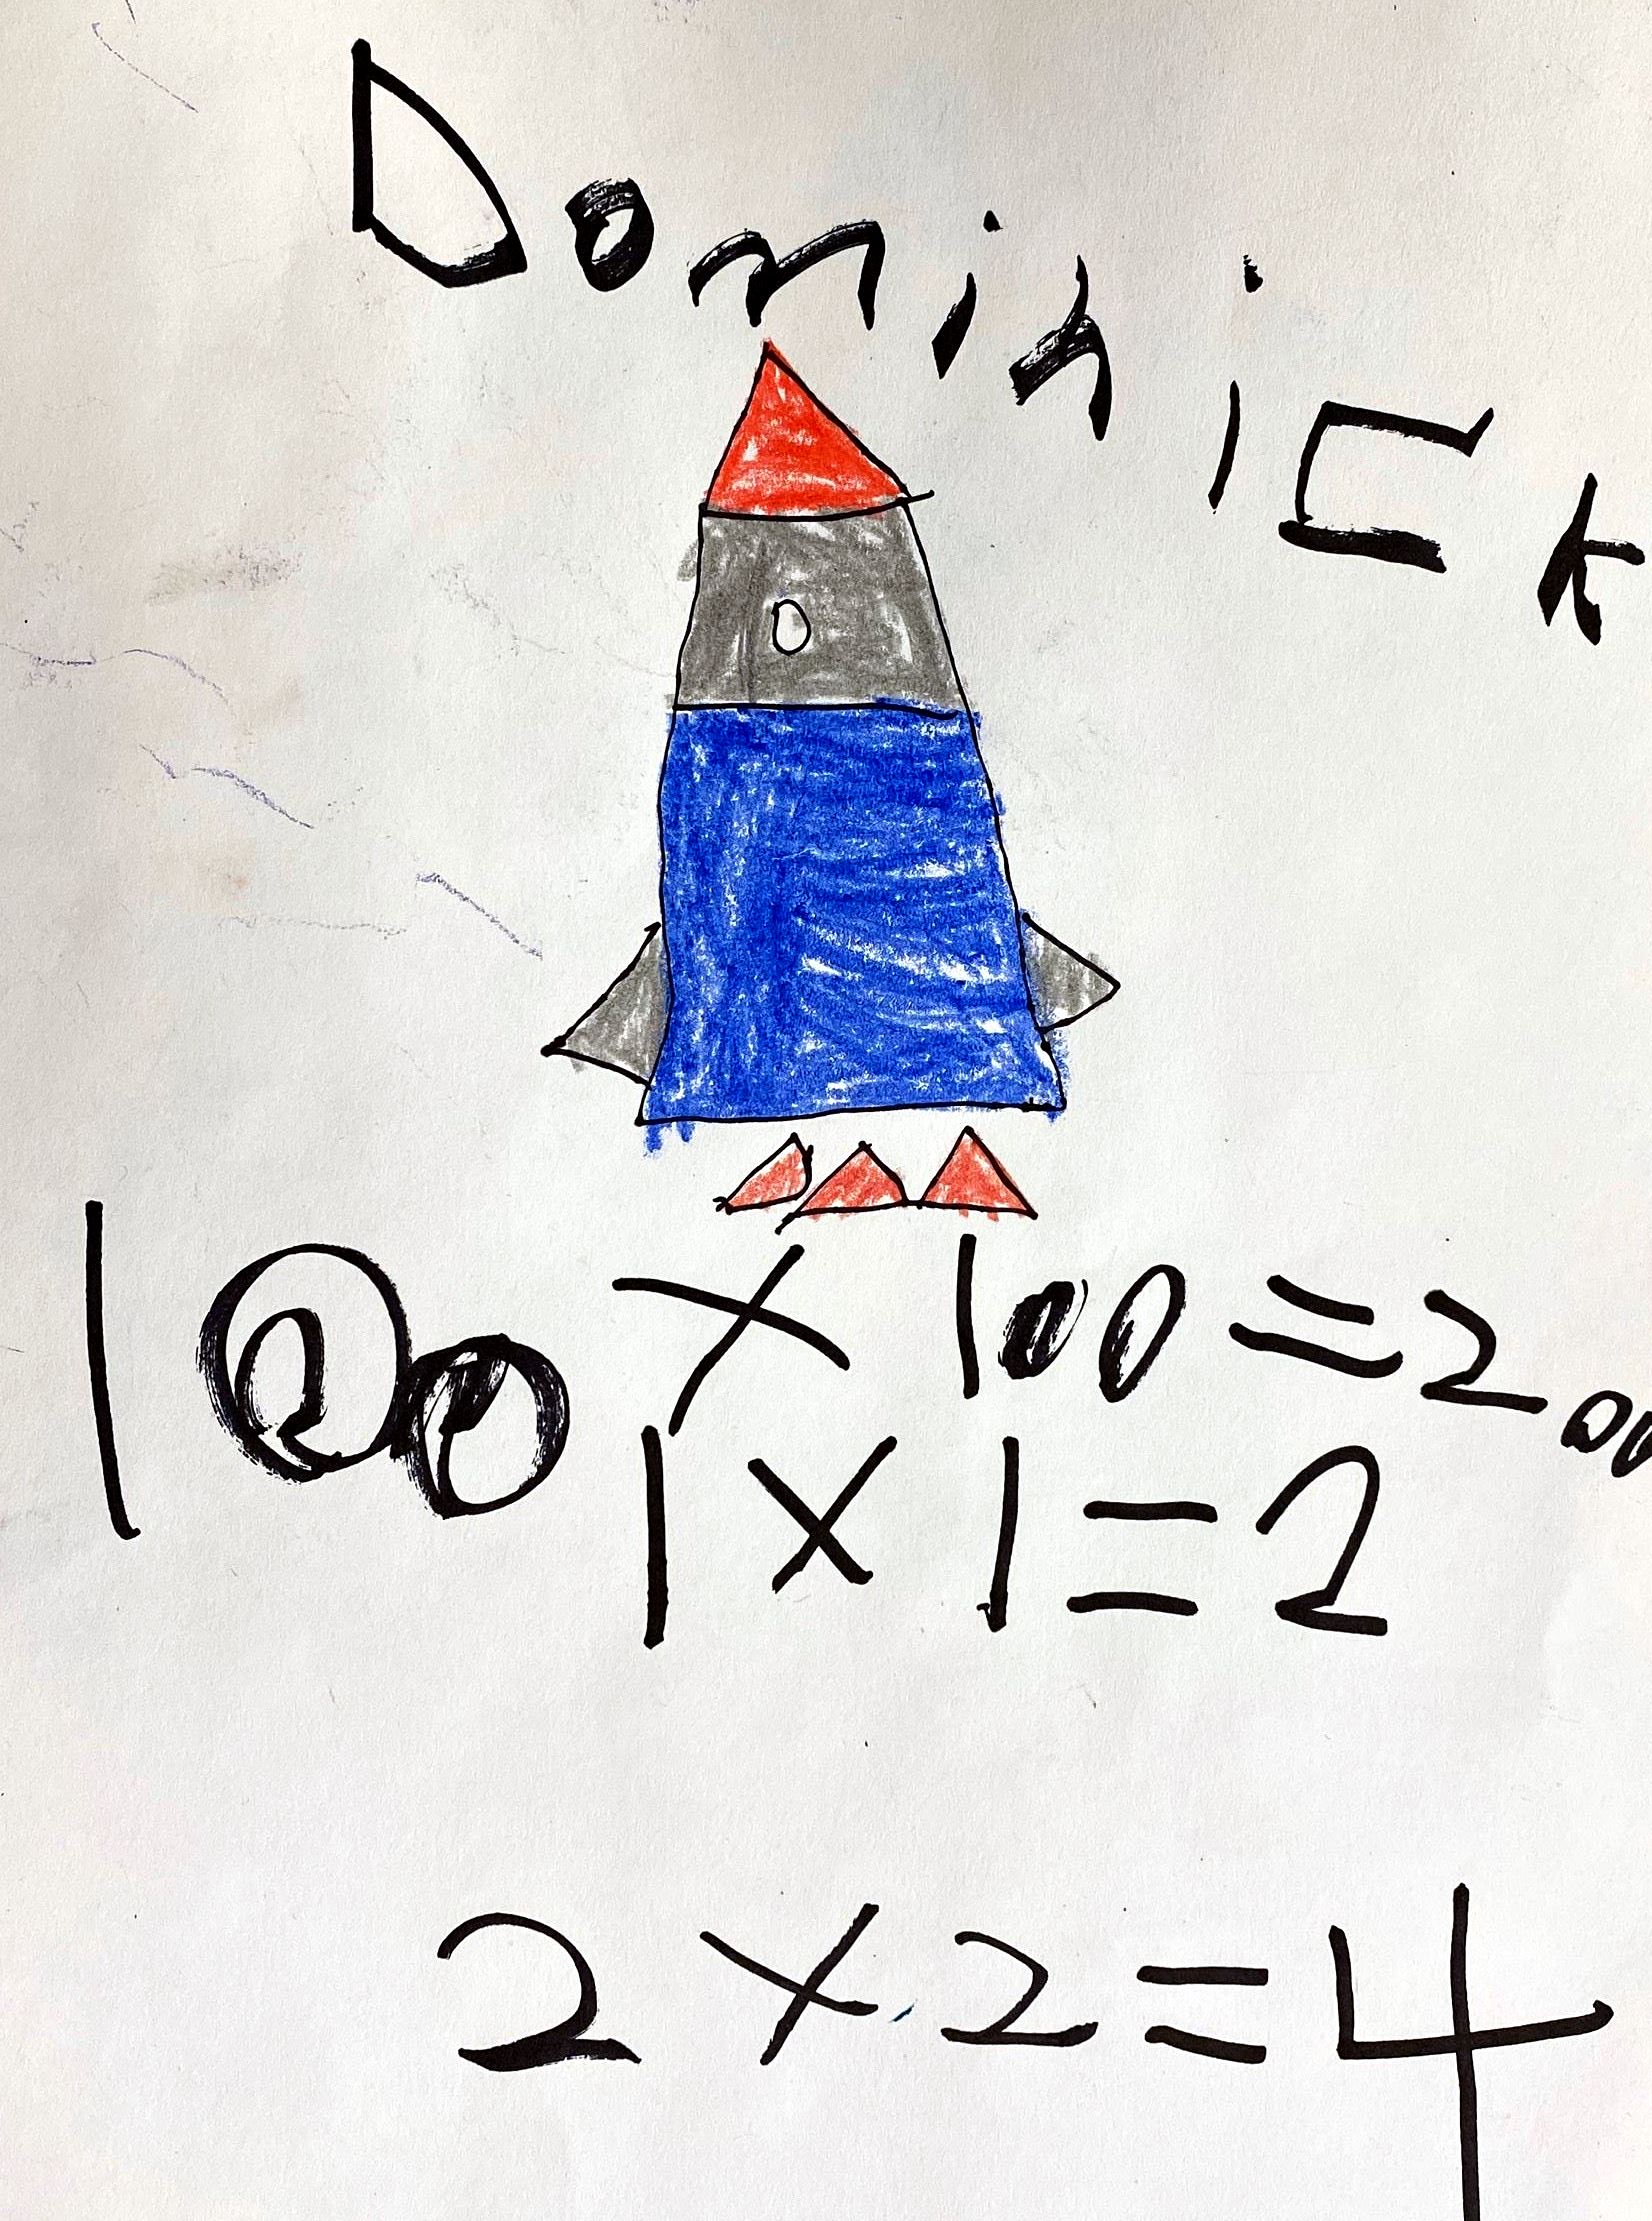 Dominick
100 x 100 = 200
1 x 1 = 2
2 x 2 = 4